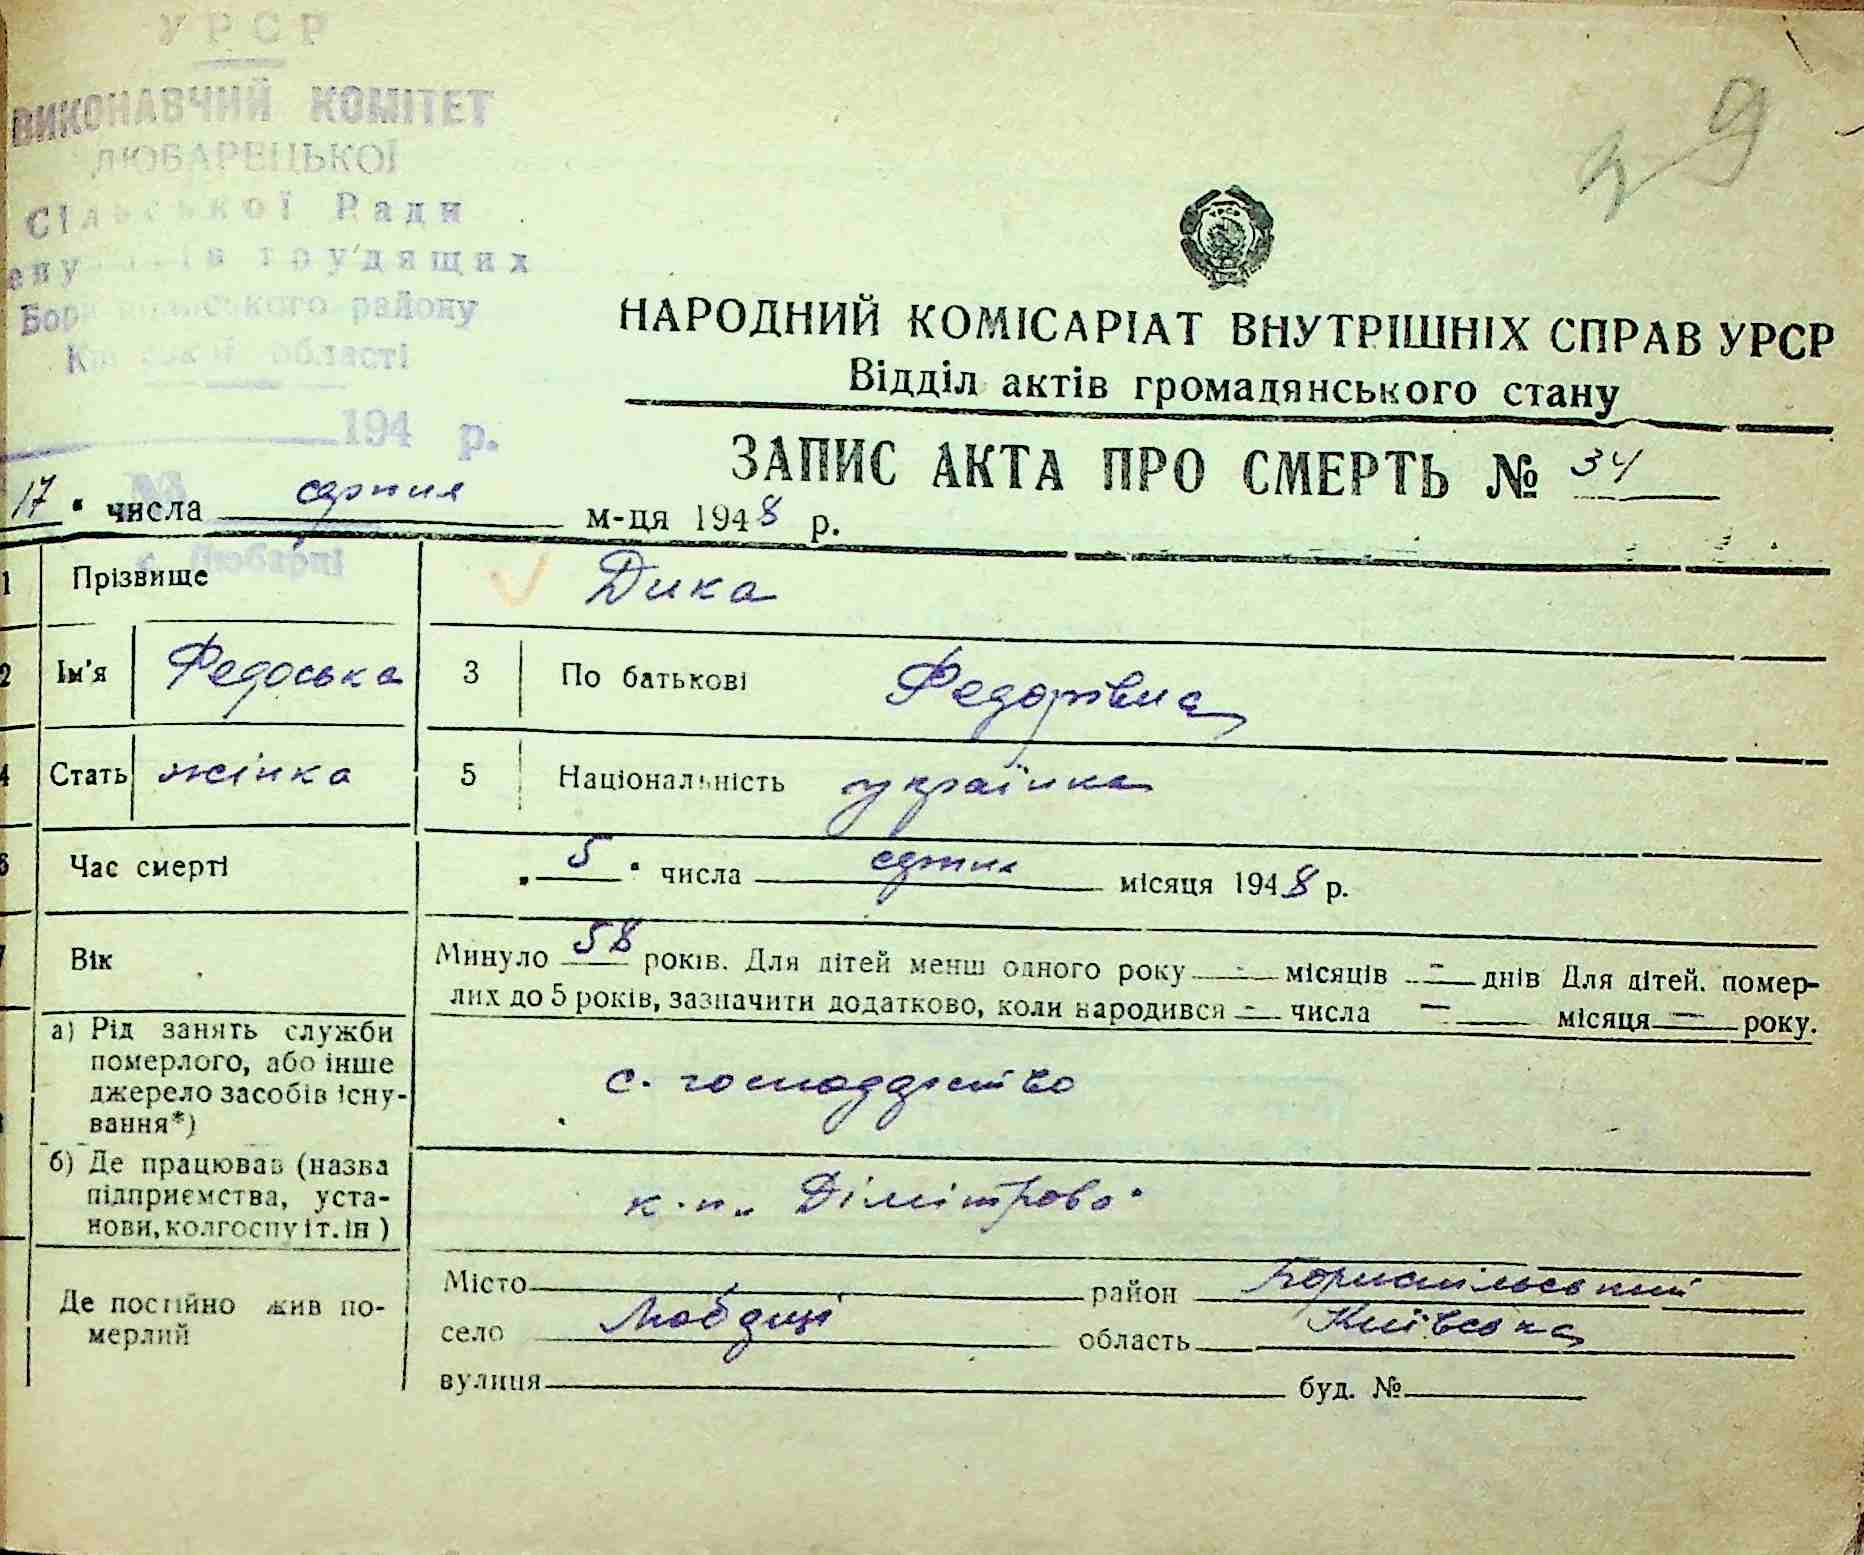 УРСР
ВИКОНАВЧИЙ КОМІТЕТ
ЛЮБАРЕЦЬКОЇ
Сільської Ради
трудящих
Бориспільського району
Київської області
194 р.
№
с. Любарці
39
УРСР
НАРОДНИЙ КОМІСАРІАТ ВНУТРІШНІХ СПРАВ УРСР
Відділ актів громадянського стану
ЗАПИС АКТА ПРО СМЕРТЬ № 34
17 " числа серпня м-ця 1948 р.
1 Прізвище Дика
2 Ім'я Федоська 3 По батькові Федорівна
4 Стать жінка 5 Національність українка
6 Час смерті „ 5 " числа серпня місяця 1948 р.
7 Вік Минуло 58 років. Для дітей менш одного року - місяців - днів Для дітей. помер-
лих до 5 років, зазначити додатково, коли народився - числа - місяця - року.
а) Рід занять служби
померлого, або інше
джерело засобів існу-
вання*)
с. господарство
б) Де працював (назва
підприємства, уста-
нови, колгоспу і т. ін )
к-п „ Дімітрова"
Де постійно жив по-
мерлий
Місто район Бориспільський
село Любарці область Київська
вулиця буд. №